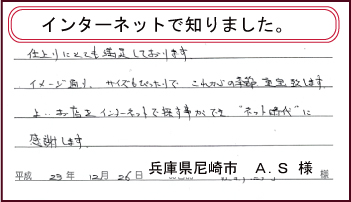 インターネットで知りました。
仕上りにとても満足しております
イメージ通り、サイズもぴったりで これからの季節 重宝致します。
お店をインターネットで探す事ができ "ネット時代"に
感謝します。
平成 23年 12月 26日
兵庫県尼崎市 A.S 様
様